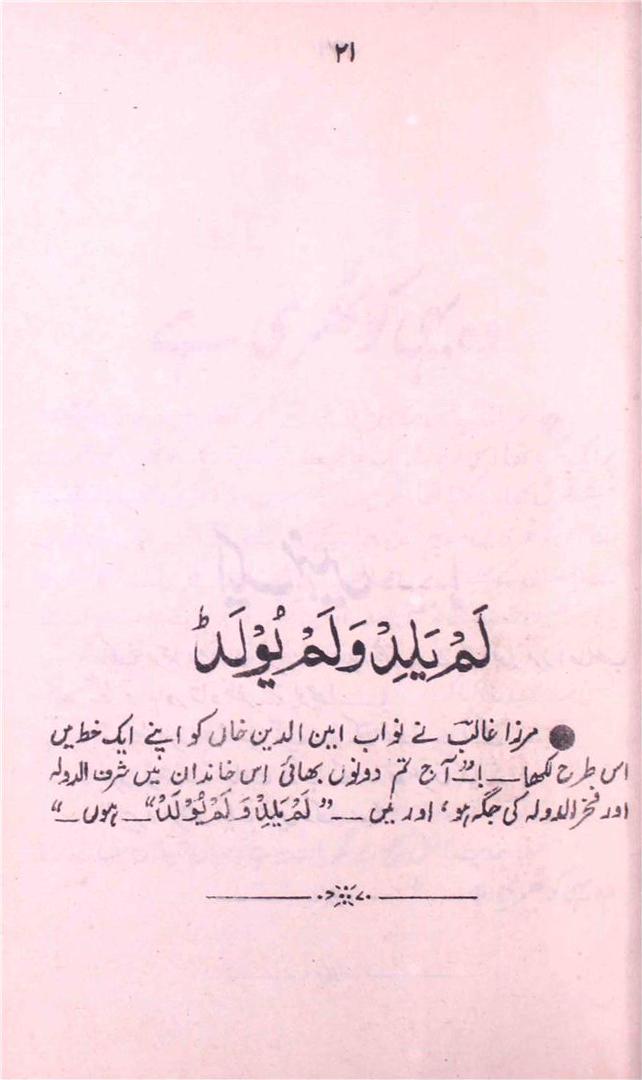 ۲۱
لَمْ یَلِدْ وَلَمْ یُوْلَدْ
● مرزا غالبؔ نے نواب امین الدین خاں کو اپنے ایک خط میں
اس طرح لکھا۔ "آج تم دونوں بھائی اس خاندان میں شرف الدولہ
اور فخر الدولہ کی جگہ ہو، اور میں ۔۔ "لَمْ یَلِدْ وَ لَمْ یُوْلَدْ"۔ ہوں۔"